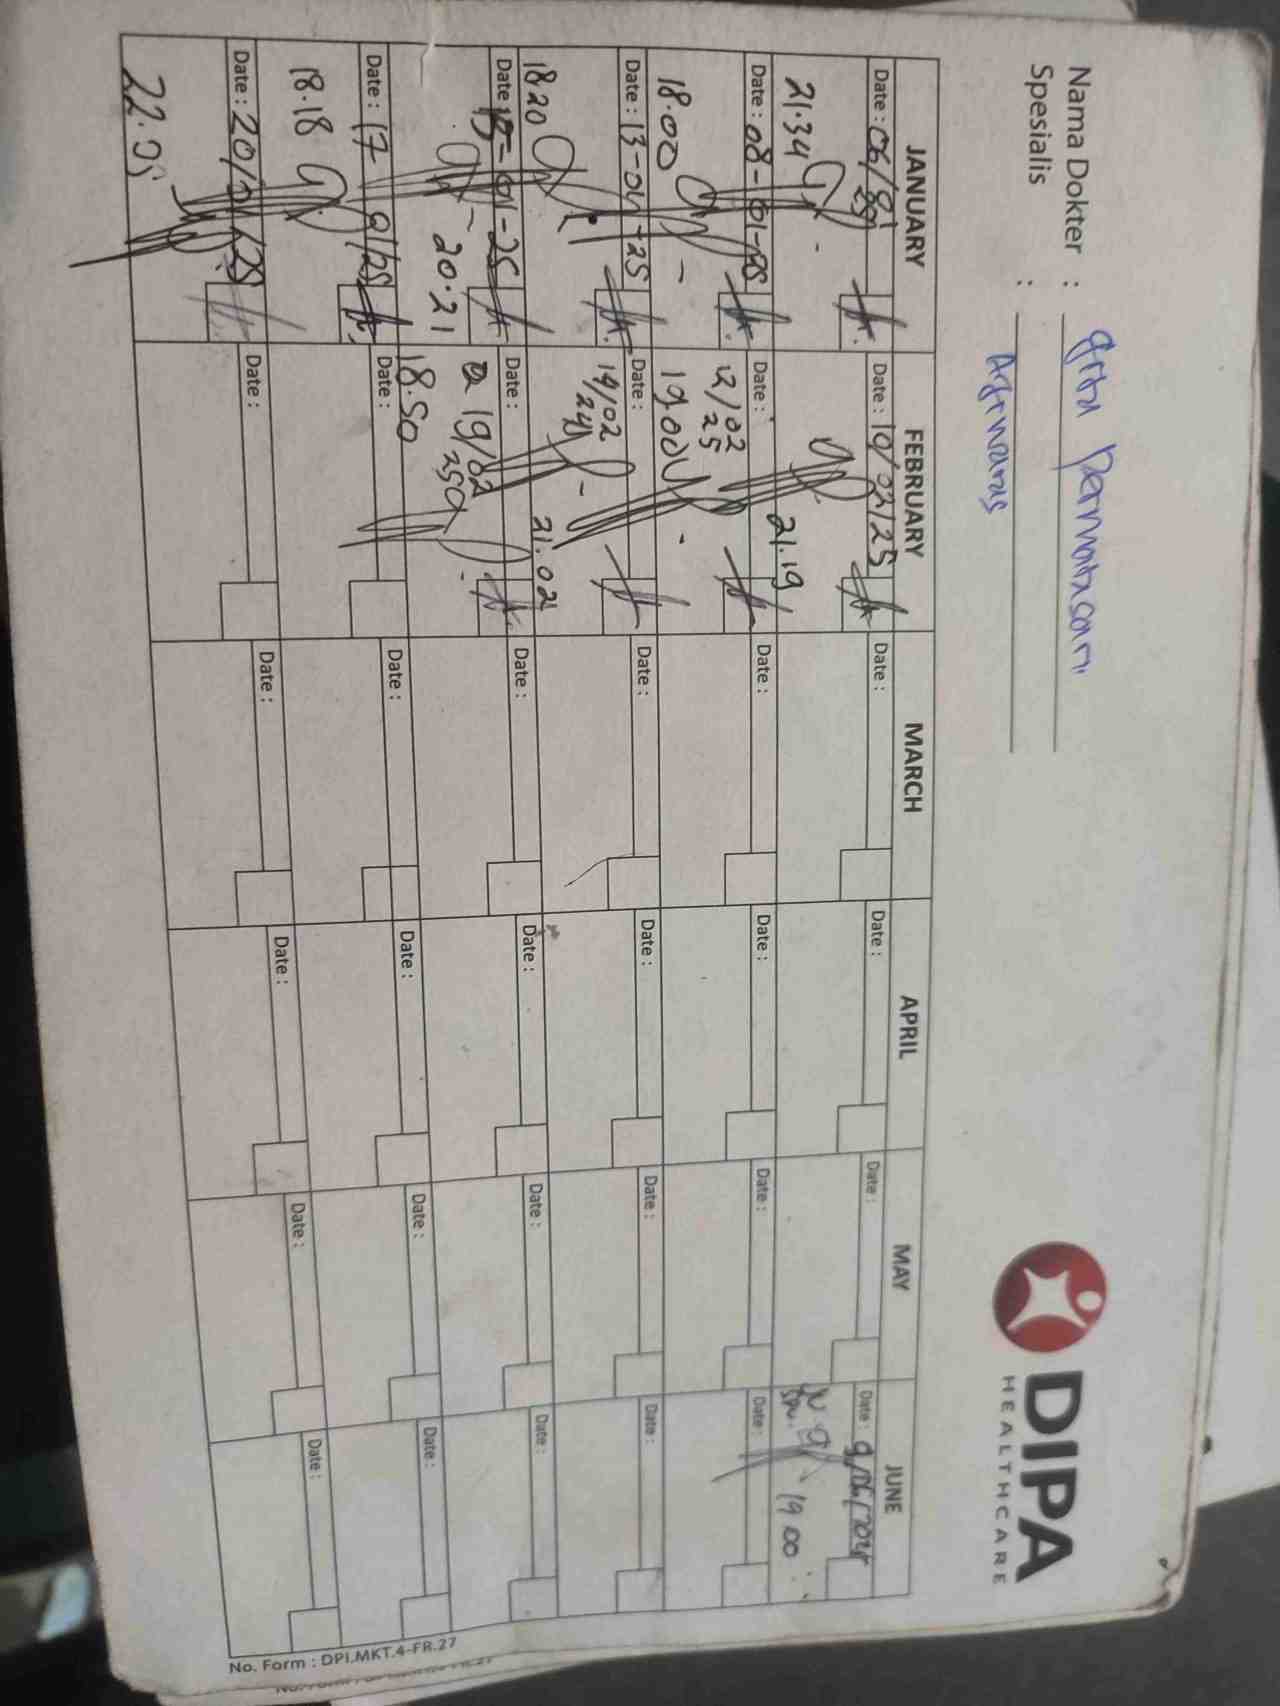 Nama Dokter :
Spesialis :
DIPA
HEALTHCARE
JANUARY
FEBRUARY
MARCH
APRIL
MAY
JUNE
Date :
21.34
Date : 10/02/25
21.19
Date :
Date :
Date :
Date :
19 00
Date : 08-01-25
18.00
Date :
12/02
25
19.00
Date :
Date :
Date :
Date :
Date : 13-01-25
18.20
Date :
19/02
21.02
Date :
Date :
Date :
Date :
Date : 15-01-25
20.21
Date :
19/02
25
18.50
Date :
Date :
Date :
Date :
Date : 17 01/25
18.18
Date :
Date :
Date :
Date :
Date :
Date : 20/01/25
22.05
Date :
Date :
Date :
Date :
Date :
No. Form : DPI.MKT.4-FR.27